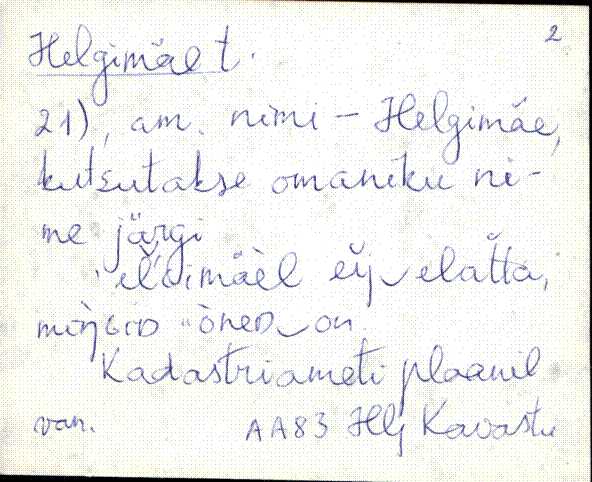 2
Helgimäe t.
21), am. nimi - Helgimäe,
kutsutakse omaniku ni-
me järgi
elatta,
on
Kadastriameti plaanil
van. AA83 Hlj Kavastu